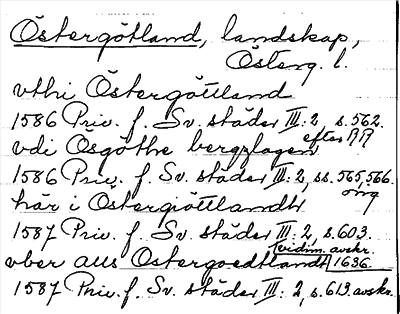 Östergötland, landskap,
Österg. l.
vthi Östergöttland
1586 Priv. f. Sv. städer III: 2, s. 562.
efter RR
vdi Ösgöthe bergzlagen
1586 Priv. f. Sv. städer III: 2, ss. 565, 566.
orig
här i Östergiöttlandh
1587 Priv. f. Sv. städer III: 2, s. 603.
vidim. avskr. 1636.
vber aus Ostergoedtlandt
1587 Priv. f. Sv. städer III: 2, s. 613. avskr.